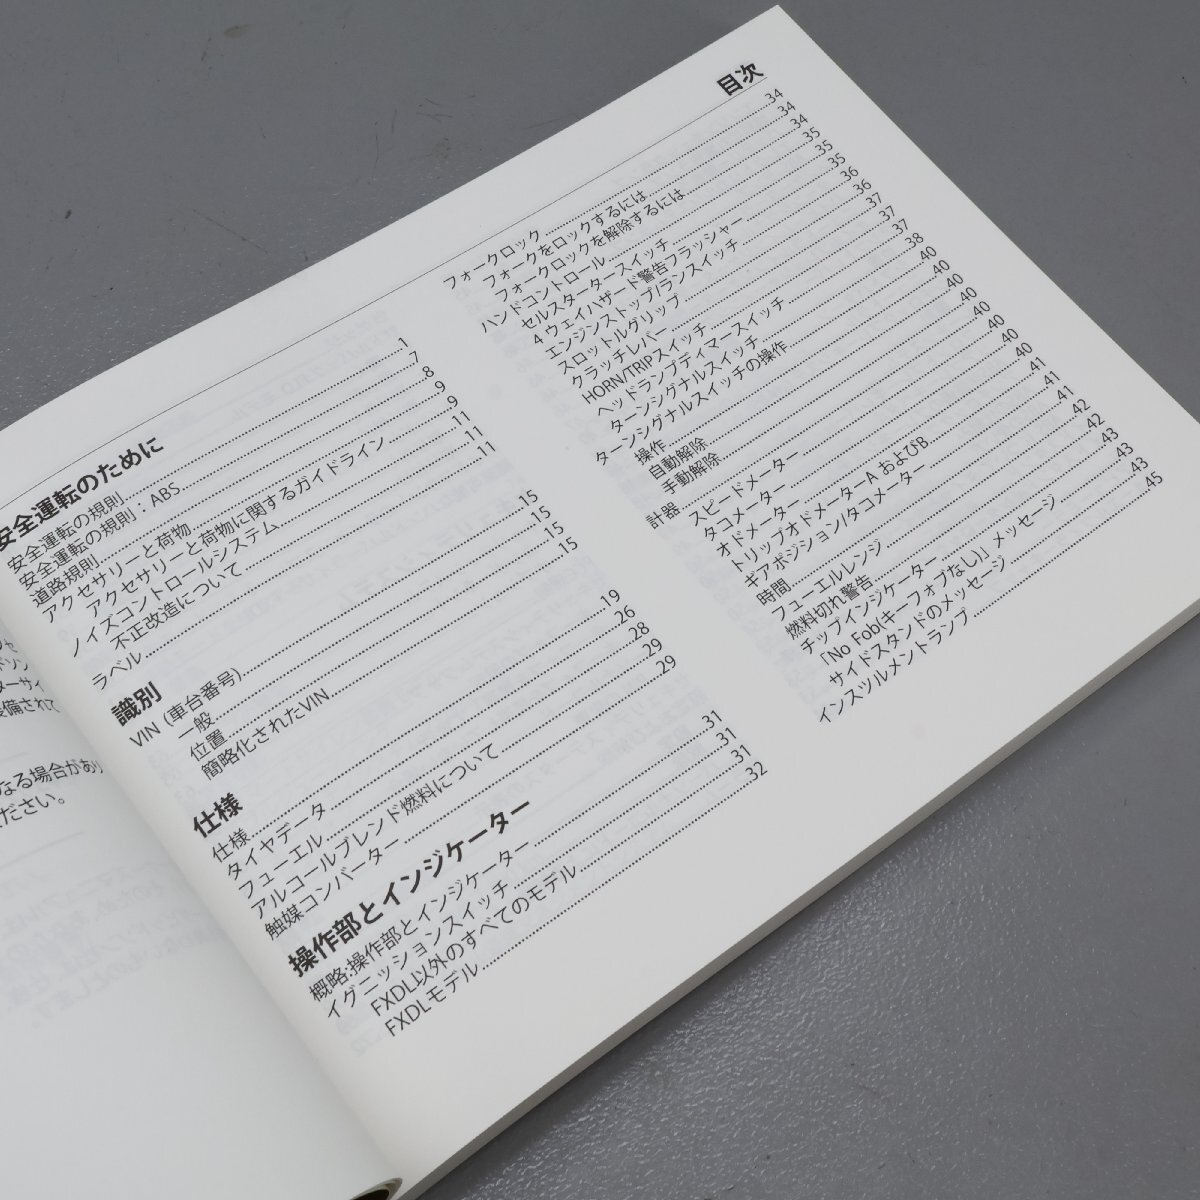 目次
安全運転のために
安全運転の規則 1
安全運転の規則：ABS 7
道路規則 8
アクセサリーと荷物 9
アクセサリーと荷物に関するガイドライン 9
ノイズコントロールシステム 11
不正改造について 11
ラベル 11
識別
VIN (車台番号) 15
一般 15
位置 15
簡略化されたVIN 15
仕様
仕様 19
タイヤデータ 26
フューエル 28
アルコールブレンド燃料について 29
触媒コンバーター 29
操作部とインジケーター
概略:操作部とインジケーター 31
イグニッションスイッチ 31
FXDL以外のすべてのモデル 31
FXDLモデル 32
フォークロック 34
フォークをロックするには 34
フォークロックを解除するには 34
ハンドコントロール 35
セルスタータースイッチ 35
4 ウェイハザード警告フラッシャー 35
エンジンストップ/ランスイッチ 36
スロットルグリップ 36
クラッチレバー 37
HORN/TRIPスイッチ 37
ヘッドランプディマースイッチ 37
ターンシグナルスイッチ 38
ターンシグナルスイッチの操作 40
操作 40
自動解除 40
手動解除 40
計器 40
スピードメーター 40
タコメーター 40
オドメーター 40
トリップオドメーターA およびB 41
ギアポジション/タコメーター 41
時間 41
フューエルレンジ 42
燃料切れ警告 42
チップインジケーター 43
「No Fob(キーフォブなし)」メッセージ 43
サイドスタンドのメッセージ 43
インスツルメントランプ 45
なる場合があり
ださい。